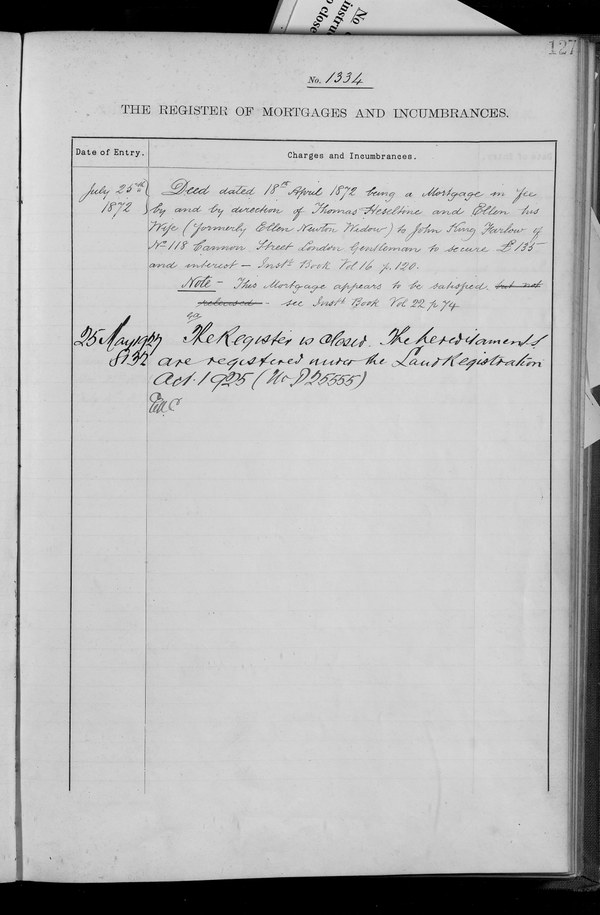 No
instru
o close
127
No. 1334
THE REGISTER OF MORTGAGES AND INCUMBRANCES.
Date of Entry.
Charges and Incumbrances.
July 25th
1872
Deed dated 18th April 1872 being a Mortgage in Fee
by and by direction of Thomas Heseltine and Ellen his
Wife (formerly Ellen Newton Widow) to John King Farlow of
No 118 Cannon Street London Gentleman to secure £135
and interest — Instt Book Vol 16 p. 120.
Note – This Mortgage appears to be satisfied but not
released - see Instt Book Vol 22 p 74
25 May 1927
The Register is closed. The hereditaments
are registered under the Land Registration
Act. 1925 (No P25555)